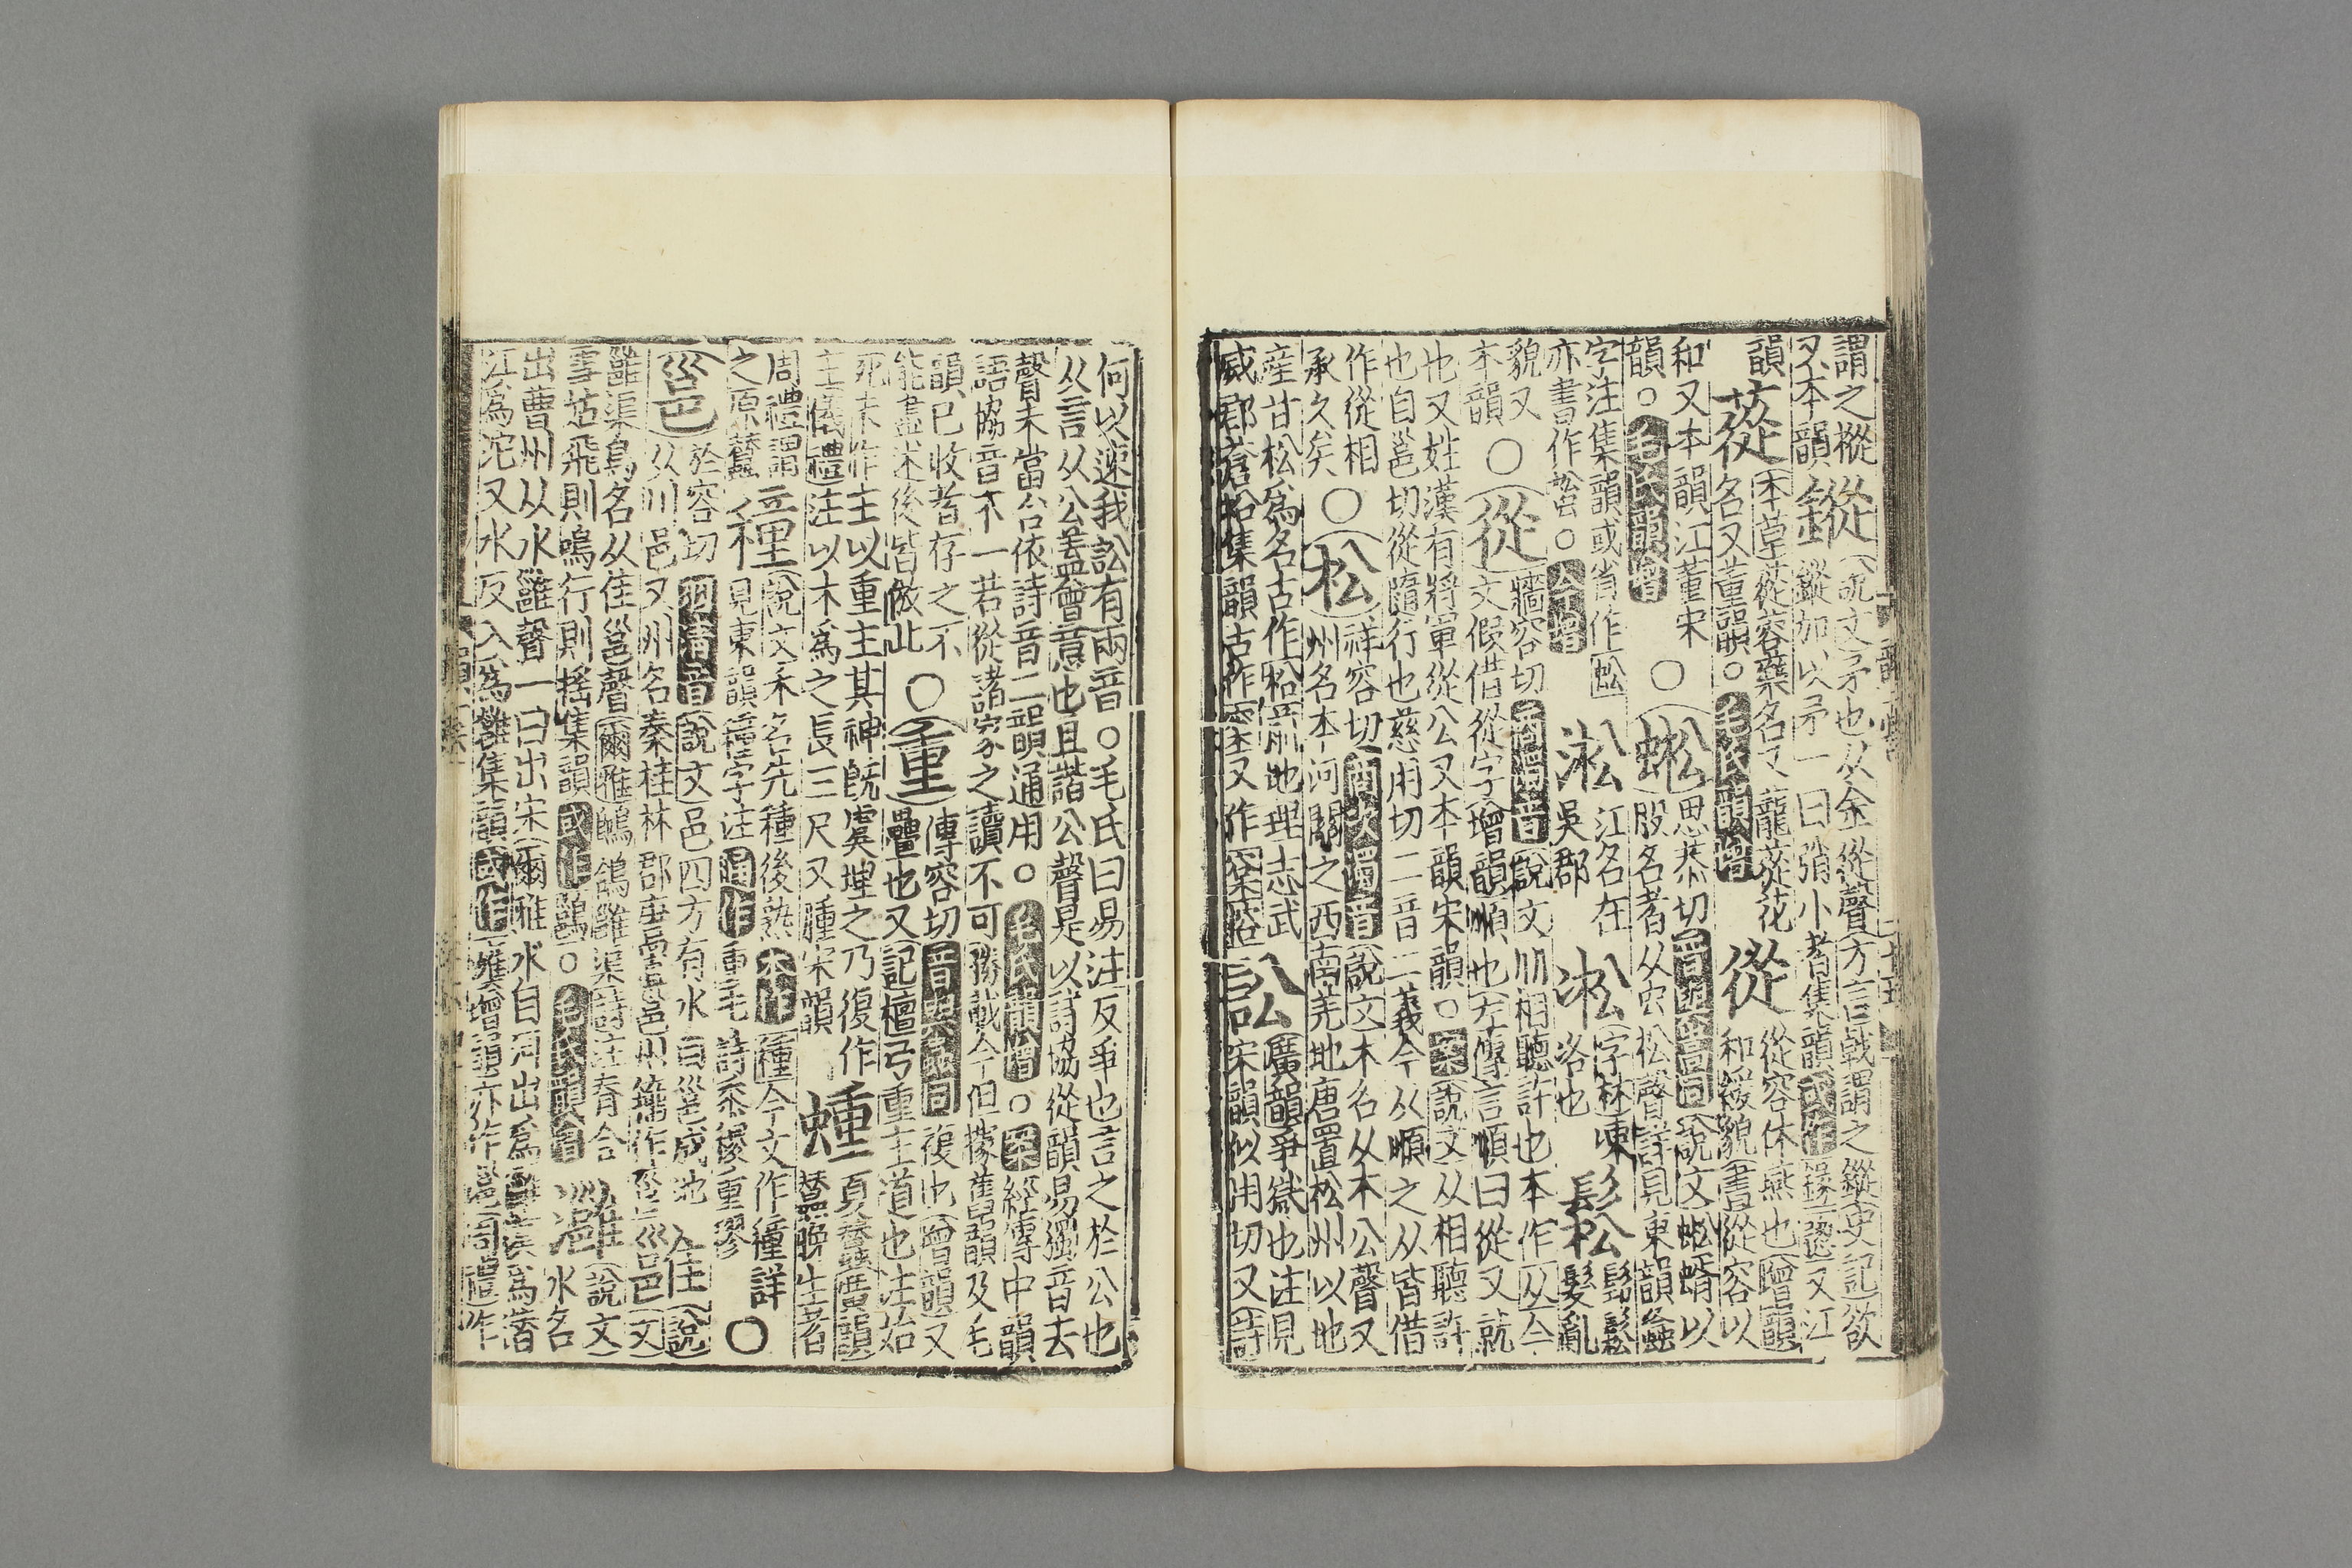 謂之樅
又本韻
鏦
說文矛也从金從聲方言戟謂之鏦史記欲
鏦加以矛一曰矟小者集韻或作錄䥲又江
韻
蓯
本草蓯蓉藥名又蘢蓯花
名又董韻○毛氏韻增
從
從容休燕也增韻
和緩貌書從容以
和又本韻江董宋
韻○毛氏韻增
○
蜙
思恭切音與嵩同說文蜙蝑以
股名者从虫松聲詳見東韻螽
字注集韻或省作蚣
亦書作○今增
淞
江名在
吳郡
凇
字林凍
洛也
鬆
髼鬆
髮亂
貌又
本韻
○
從
牆容切商濁音說文从相聽許也本作从今
文假借從字增韻順也左傳言順曰從又就
也又姓漢有將軍從公又本韻宋韻○案說文从相聽許
也自邕切從隨行也慈用切二音二義今从順之从皆借
作從相
承久矣
○
松
祥容切商次濁音說文木名从木公聲又
州名本河關之西南羌地唐置松州以地
産甘松爲名古作枀前地理志武
威郡蒼松集韻古作窠又作
訟
廣韻爭獄也注見
宋韻似用切又詩
何以速我訟有兩音○毛氏曰易注反爭也言之於公也
从言从公蓋會意也且諧公聲是以詩協從韻易獨音去
聲未當合依詩音二韻通用○毛氏韻增○案經傳中韻
語協音不一若從諸家之讀不可勝載今但據舊韻及毛
韻已收者存之不
能盡述後皆倣此
○
重
傳容切音與蟲同複也增韻又
疊也又記檀弓重主道也注始
死未作主以重主其神旣虞埋之乃復作
主儀禮注以木爲之長三尺又腫宋韻
蝩
夏蠶廣韻
蠶晚生者
周禮謂
之原蠶
種
說文禾名先種後熟本作種今文作穜詳
見東韻穜字注通作重毛詩黍稷重穋
○
邕
於容切羽清音說文邑四方有水自邕成池
从川邑又州名秦桂林郡唐置邕州籒作
隹
說
文
雝渠鳥名从隹邕聲爾雅鶺鴒雝渠詩注春令
雪姑飛則鳴行則搖集韻或作○毛氏韻增
灉
說文
水名
出曹州从水雝聲一曰出宋爾雅水自河出爲灉漢爲潛
江爲沱又水反入爲灉集韻或作雍增韻亦作邕周禮作